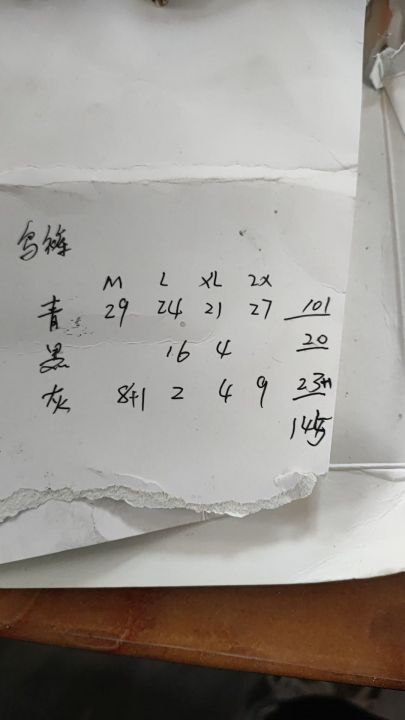 M L XL 2X
青 29 24 21 27 101
黑 16 4 20
灰 8+1 2 4 9 23+1